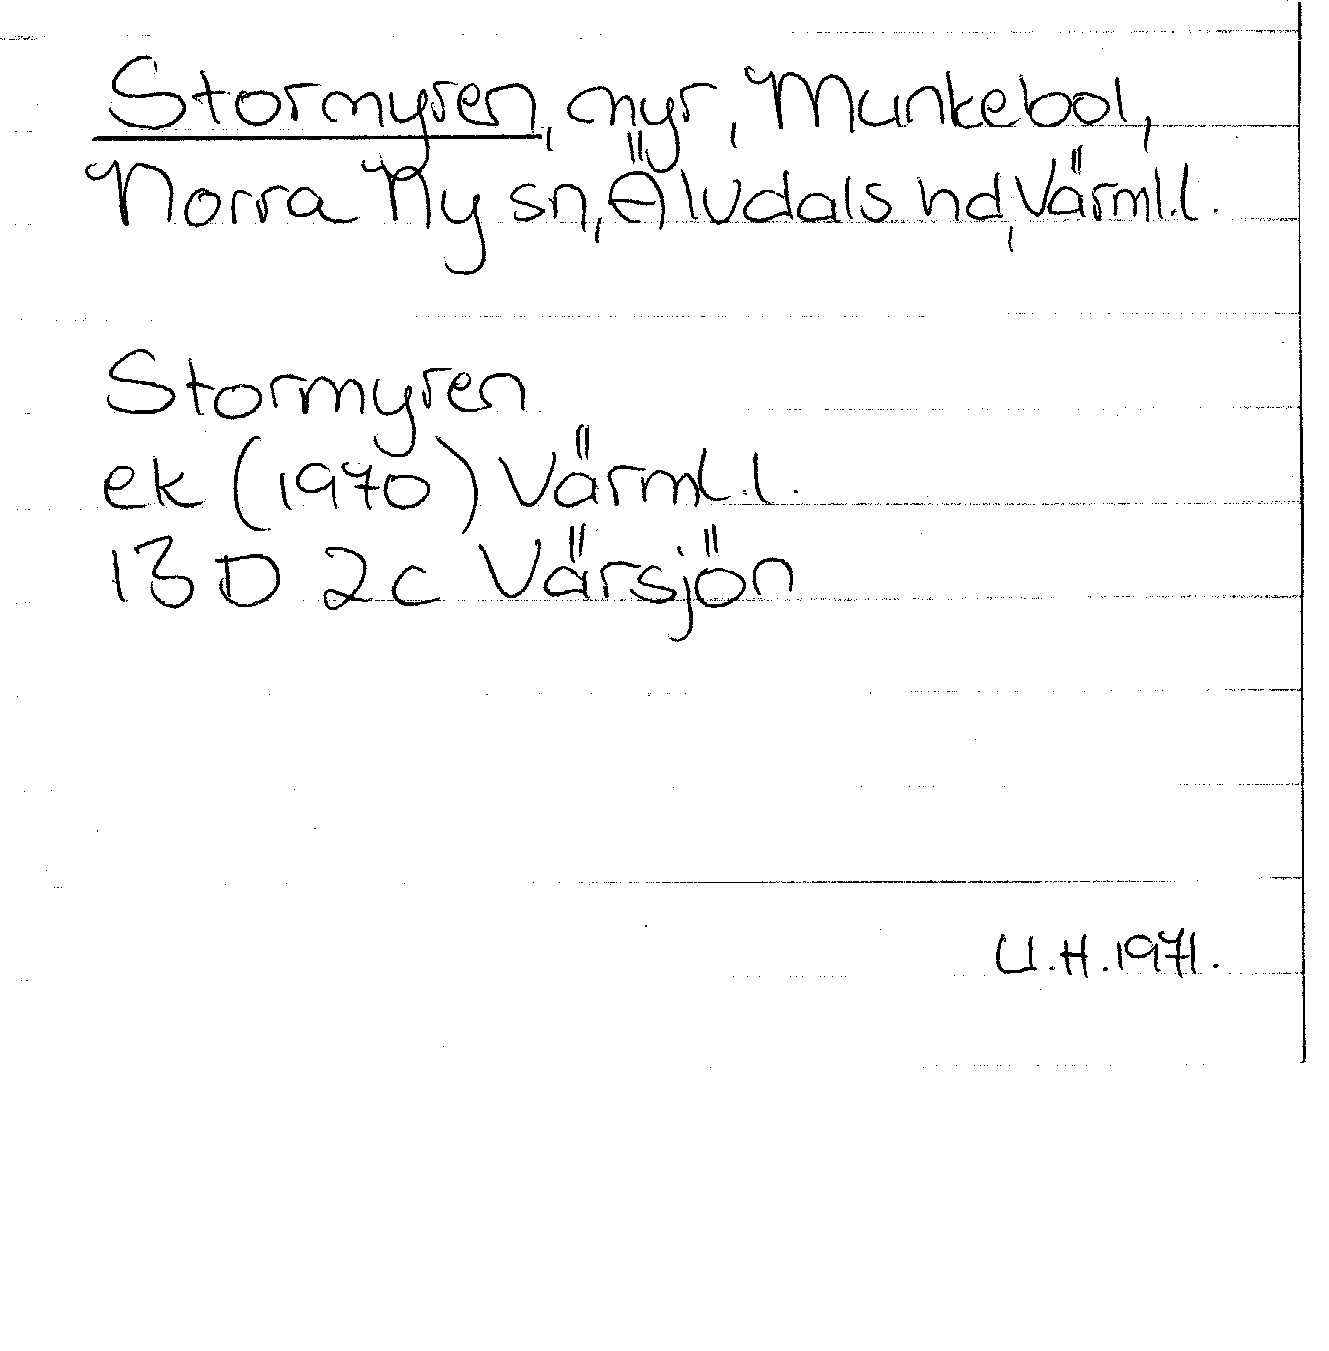 Stormyren, myr, Munkebol,
Norra Ny sn, Älvdals hd, Värml.l.
Stormyren
ek (1970) Värml.l.
13 D 2c Värsjön
U.H.1971.